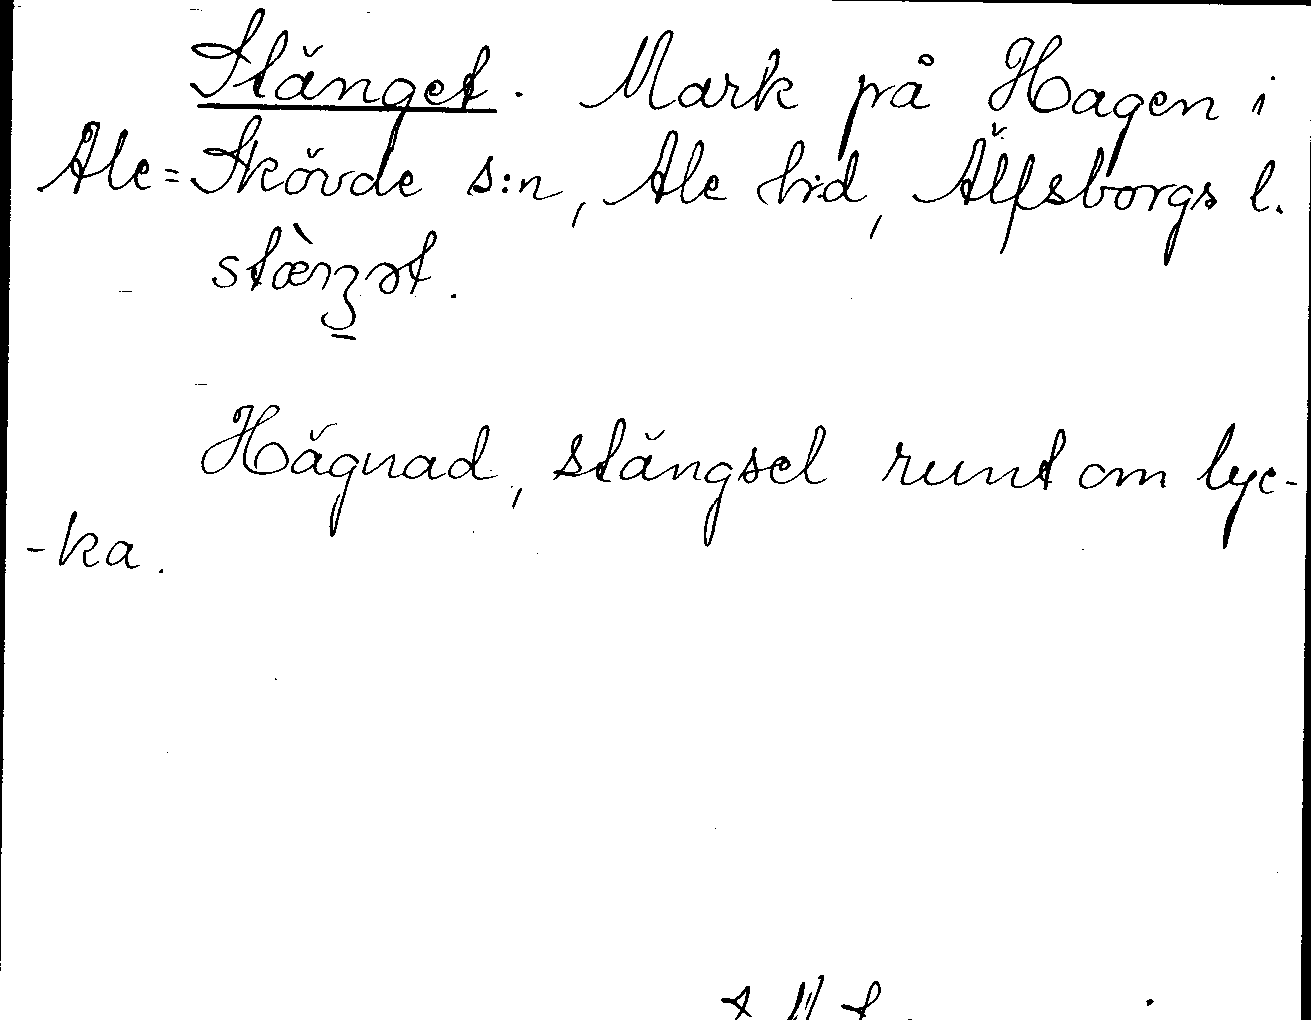 Stänget. Mark på Hagen i
Ale=Skövde s:n, Ale h:d, Älfsborgs l.
Hägnad, stängsel runt om lyc-
-ka.